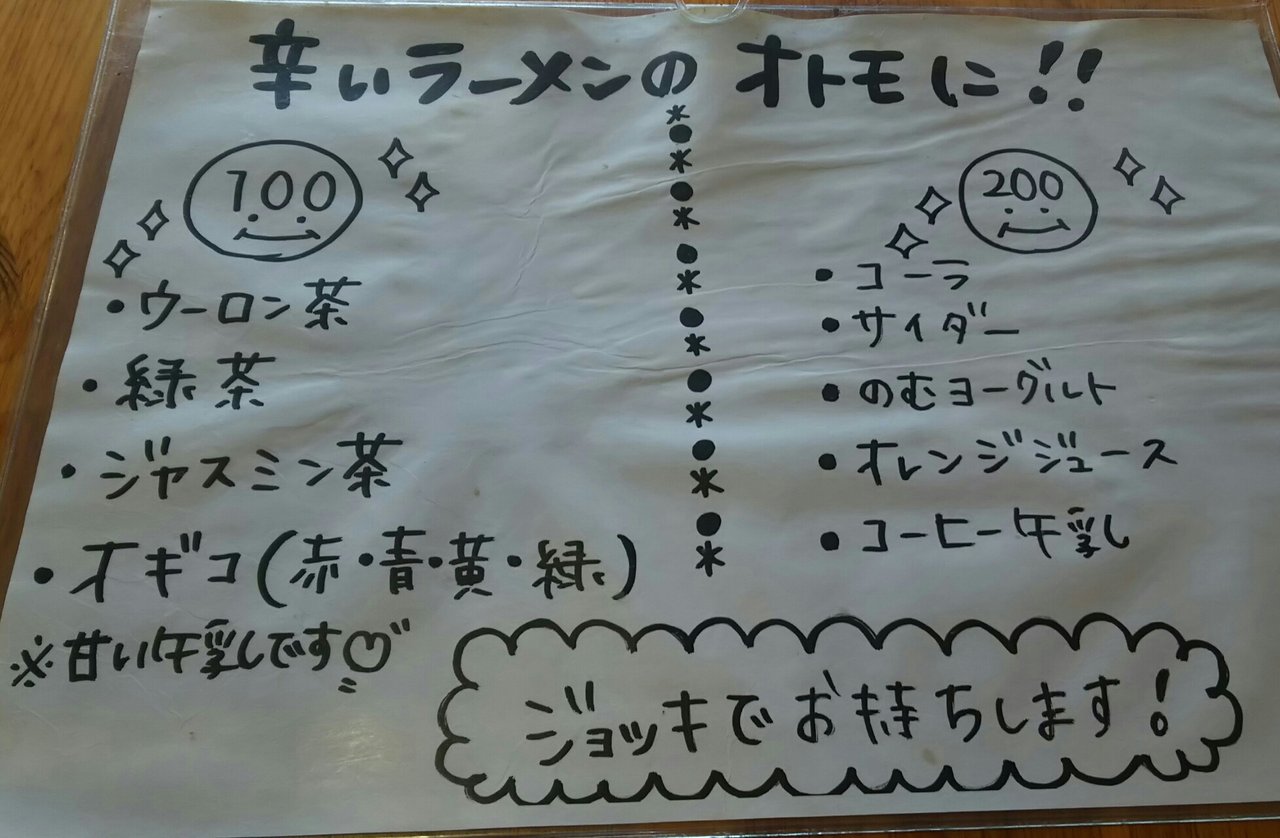 辛いラーメンのオトモに!!
100
・ウーロン茶
・緑茶
・ジャスミン茶
・オギコ(赤・青・黄・緑)
※甘い牛乳しです
200
・コーラ
・サイダー
・のむヨーグルト
・オレンジジュース
・コーヒー牛乳し
ジョッキでお持ちします!